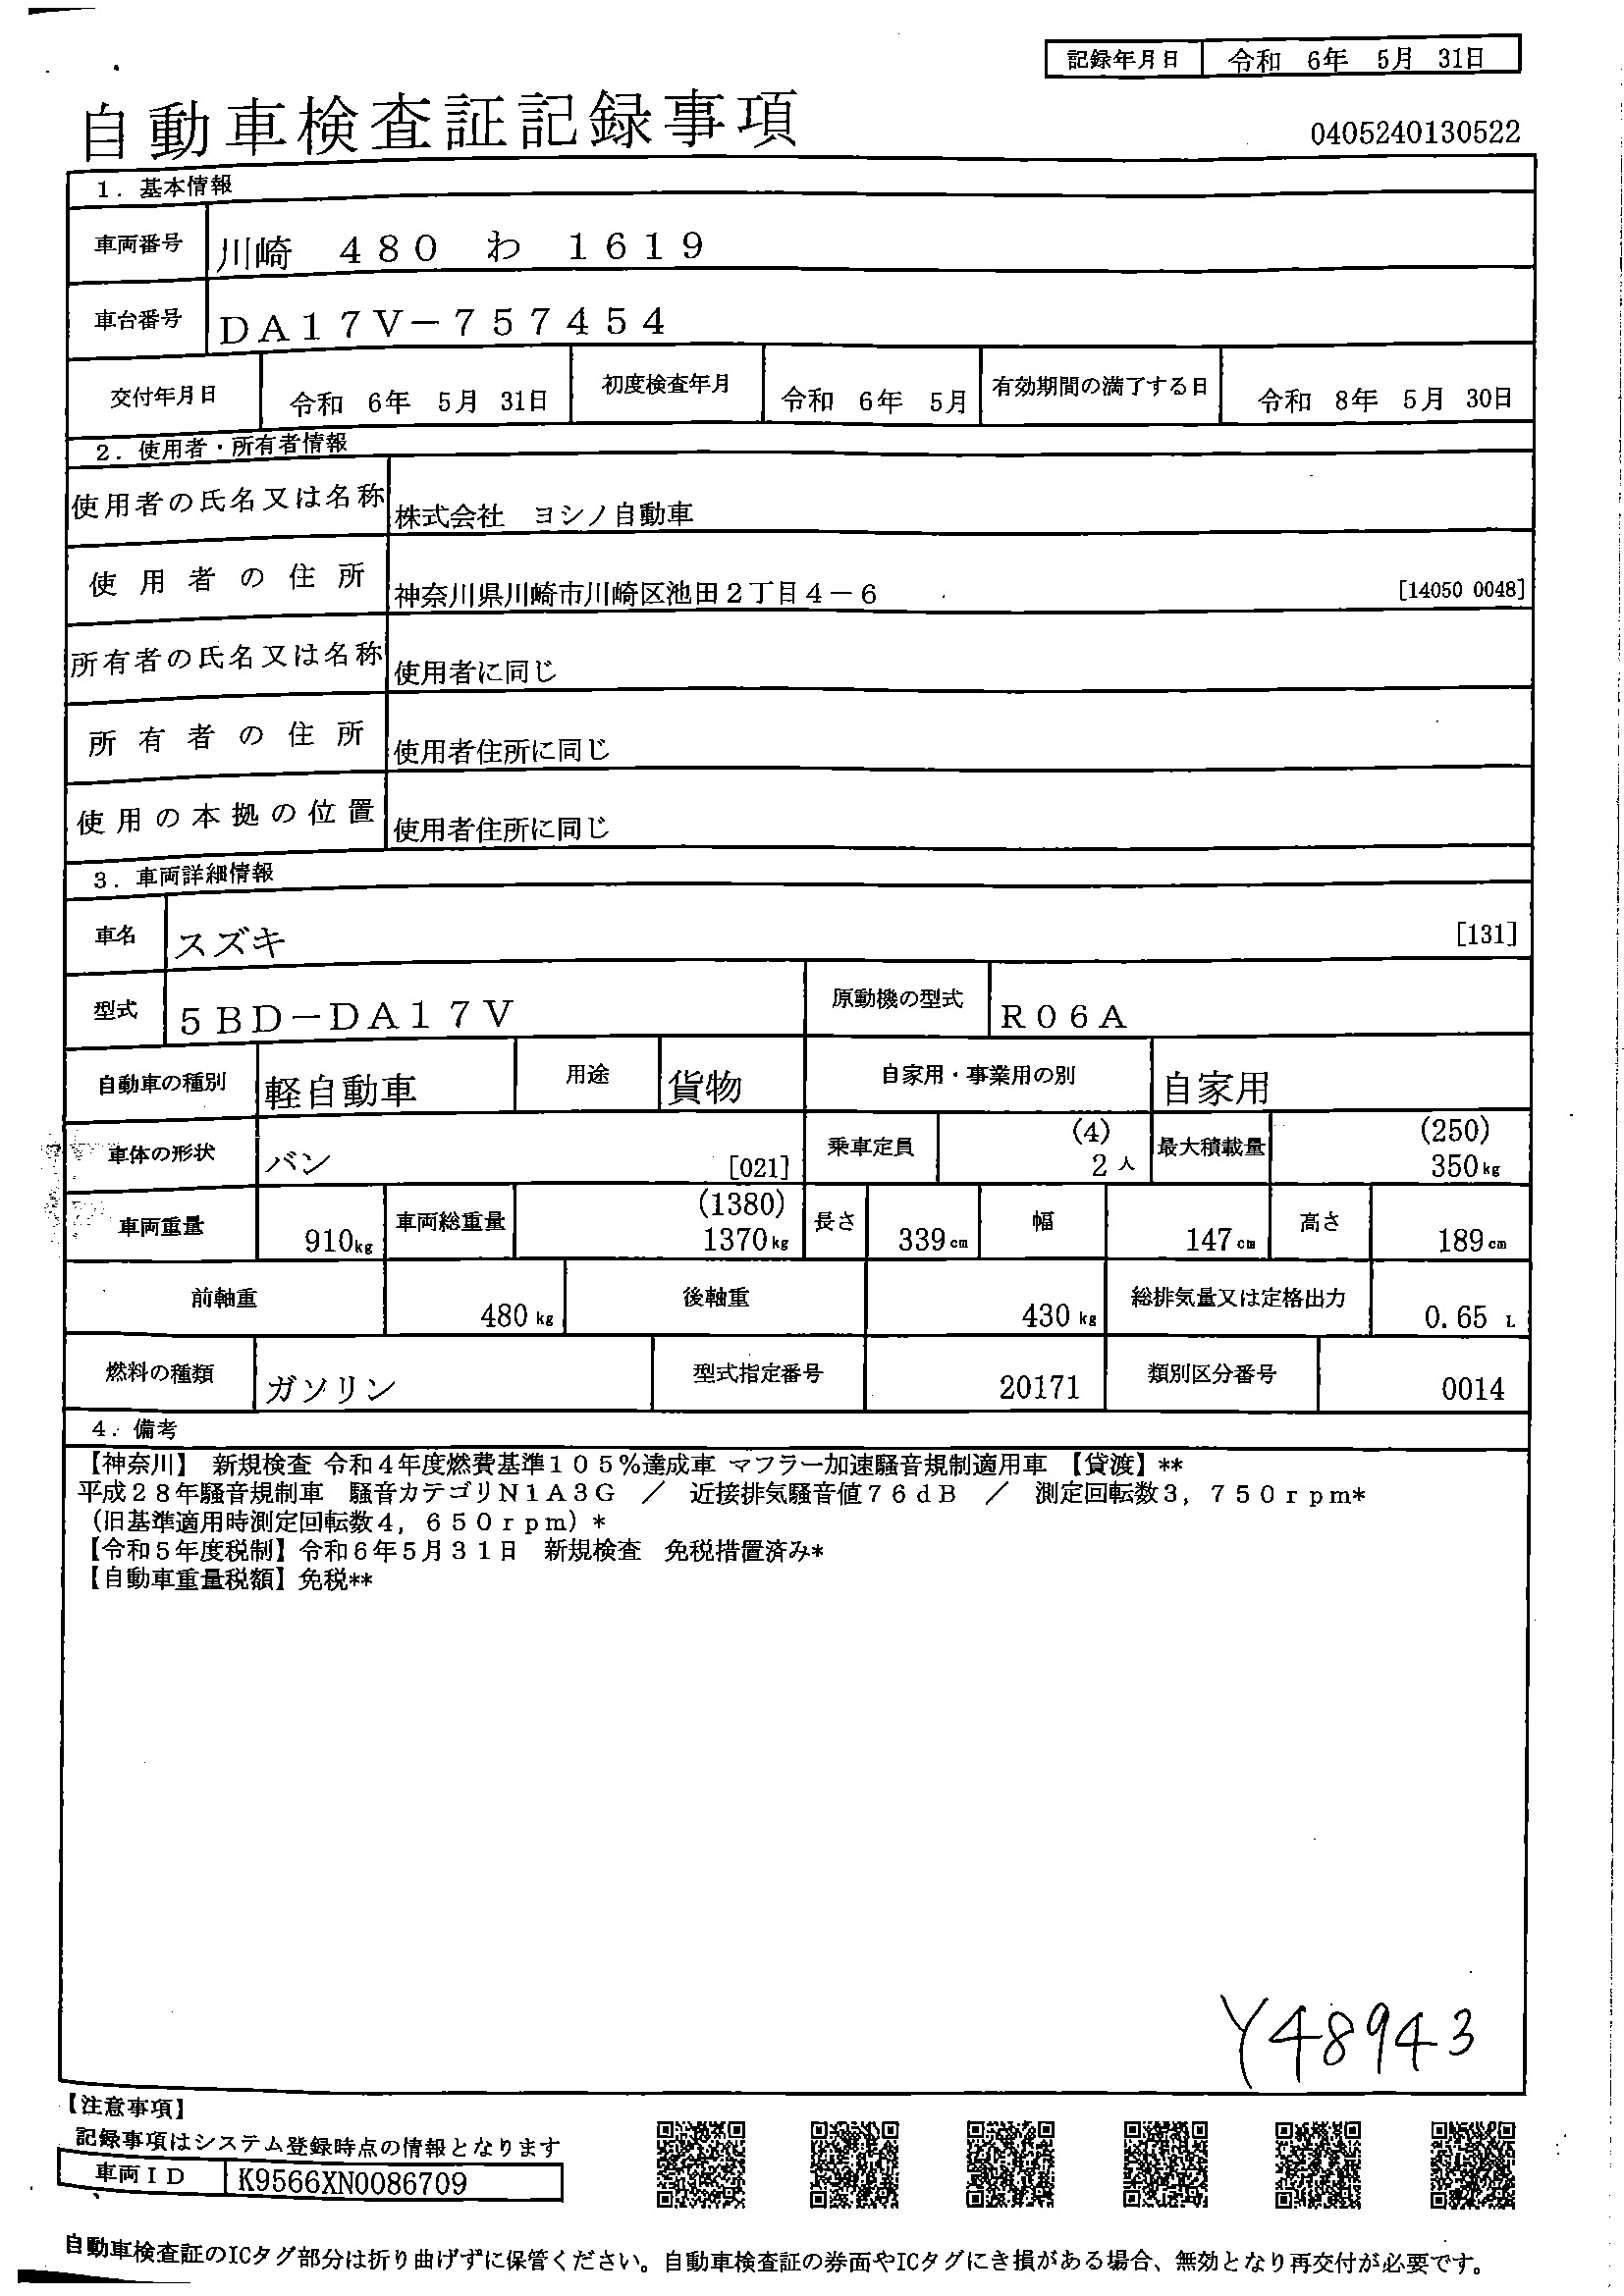 記録年月日 令和 6年 5月 31日
自動車検査証記録事項
0405240130522
1. 基本情報
車両番号 川崎 480 わ 1619
車台番号 DA17V-757454
交付年月日 令和 6年 5月 31日 初度検査年月 令和 6年 5月 有効期間の満了する日 令和 8年 5月 30日
2. 使用者・所有者情報
使用者の氏名又は名称 株式会社 ヨシノ自動車
使用者の住所 神奈川県川崎市川崎区池田2丁目4-6 [14050 0048]
所有者の氏名又は名称 使用者に同じ
所有者の住所 使用者住所に同じ
使用の本拠の位置 使用者住所に同じ
3. 車両詳細情報
車名 スズキ [131]
型式 5BD-DA17V 原動機の型式 R06A
自動車の種別 軽自動車 用途 貨物 自家用・事業用の別 自家用
車体の形状 バン [021] 乗車定員 (4) 2人 最大積載量 (250) 350kg
車両重量 910kg 車両総重量 (1380) 1370kg 長さ 339cm 幅 147cm 高さ 189cm
前軸重 480kg 後軸重 430kg 総排気量又は定格出力 0.65 L
燃料の種類 ガソリン 型式指定番号 20171 類別区分番号 0014
4. 備考
【神奈川】 新規検査 令和4年度燃費基準105%達成車 マフラー加速騒音規制適用車 【貸渡】**
平成28年騒音規制車 騒音カテゴリN1A3G / 近接排気騒音値76dB / 測定回転数3,750rpm*
(旧基準適用時測定回転数4,650rpm)*
【令和5年度税制】令和6年5月31日 新規検査 免税措置済み*
【自動車重量税額】免税**
Y48943
【注意事項】
記録事項はシステム登録時点の情報となります
車両ID K9566XN0086709
自動車検査証のICタグ部分は折り曲げずに保管ください。自動車検査証の券面やICタグにき損がある場合、無効となり再交付が必要です。